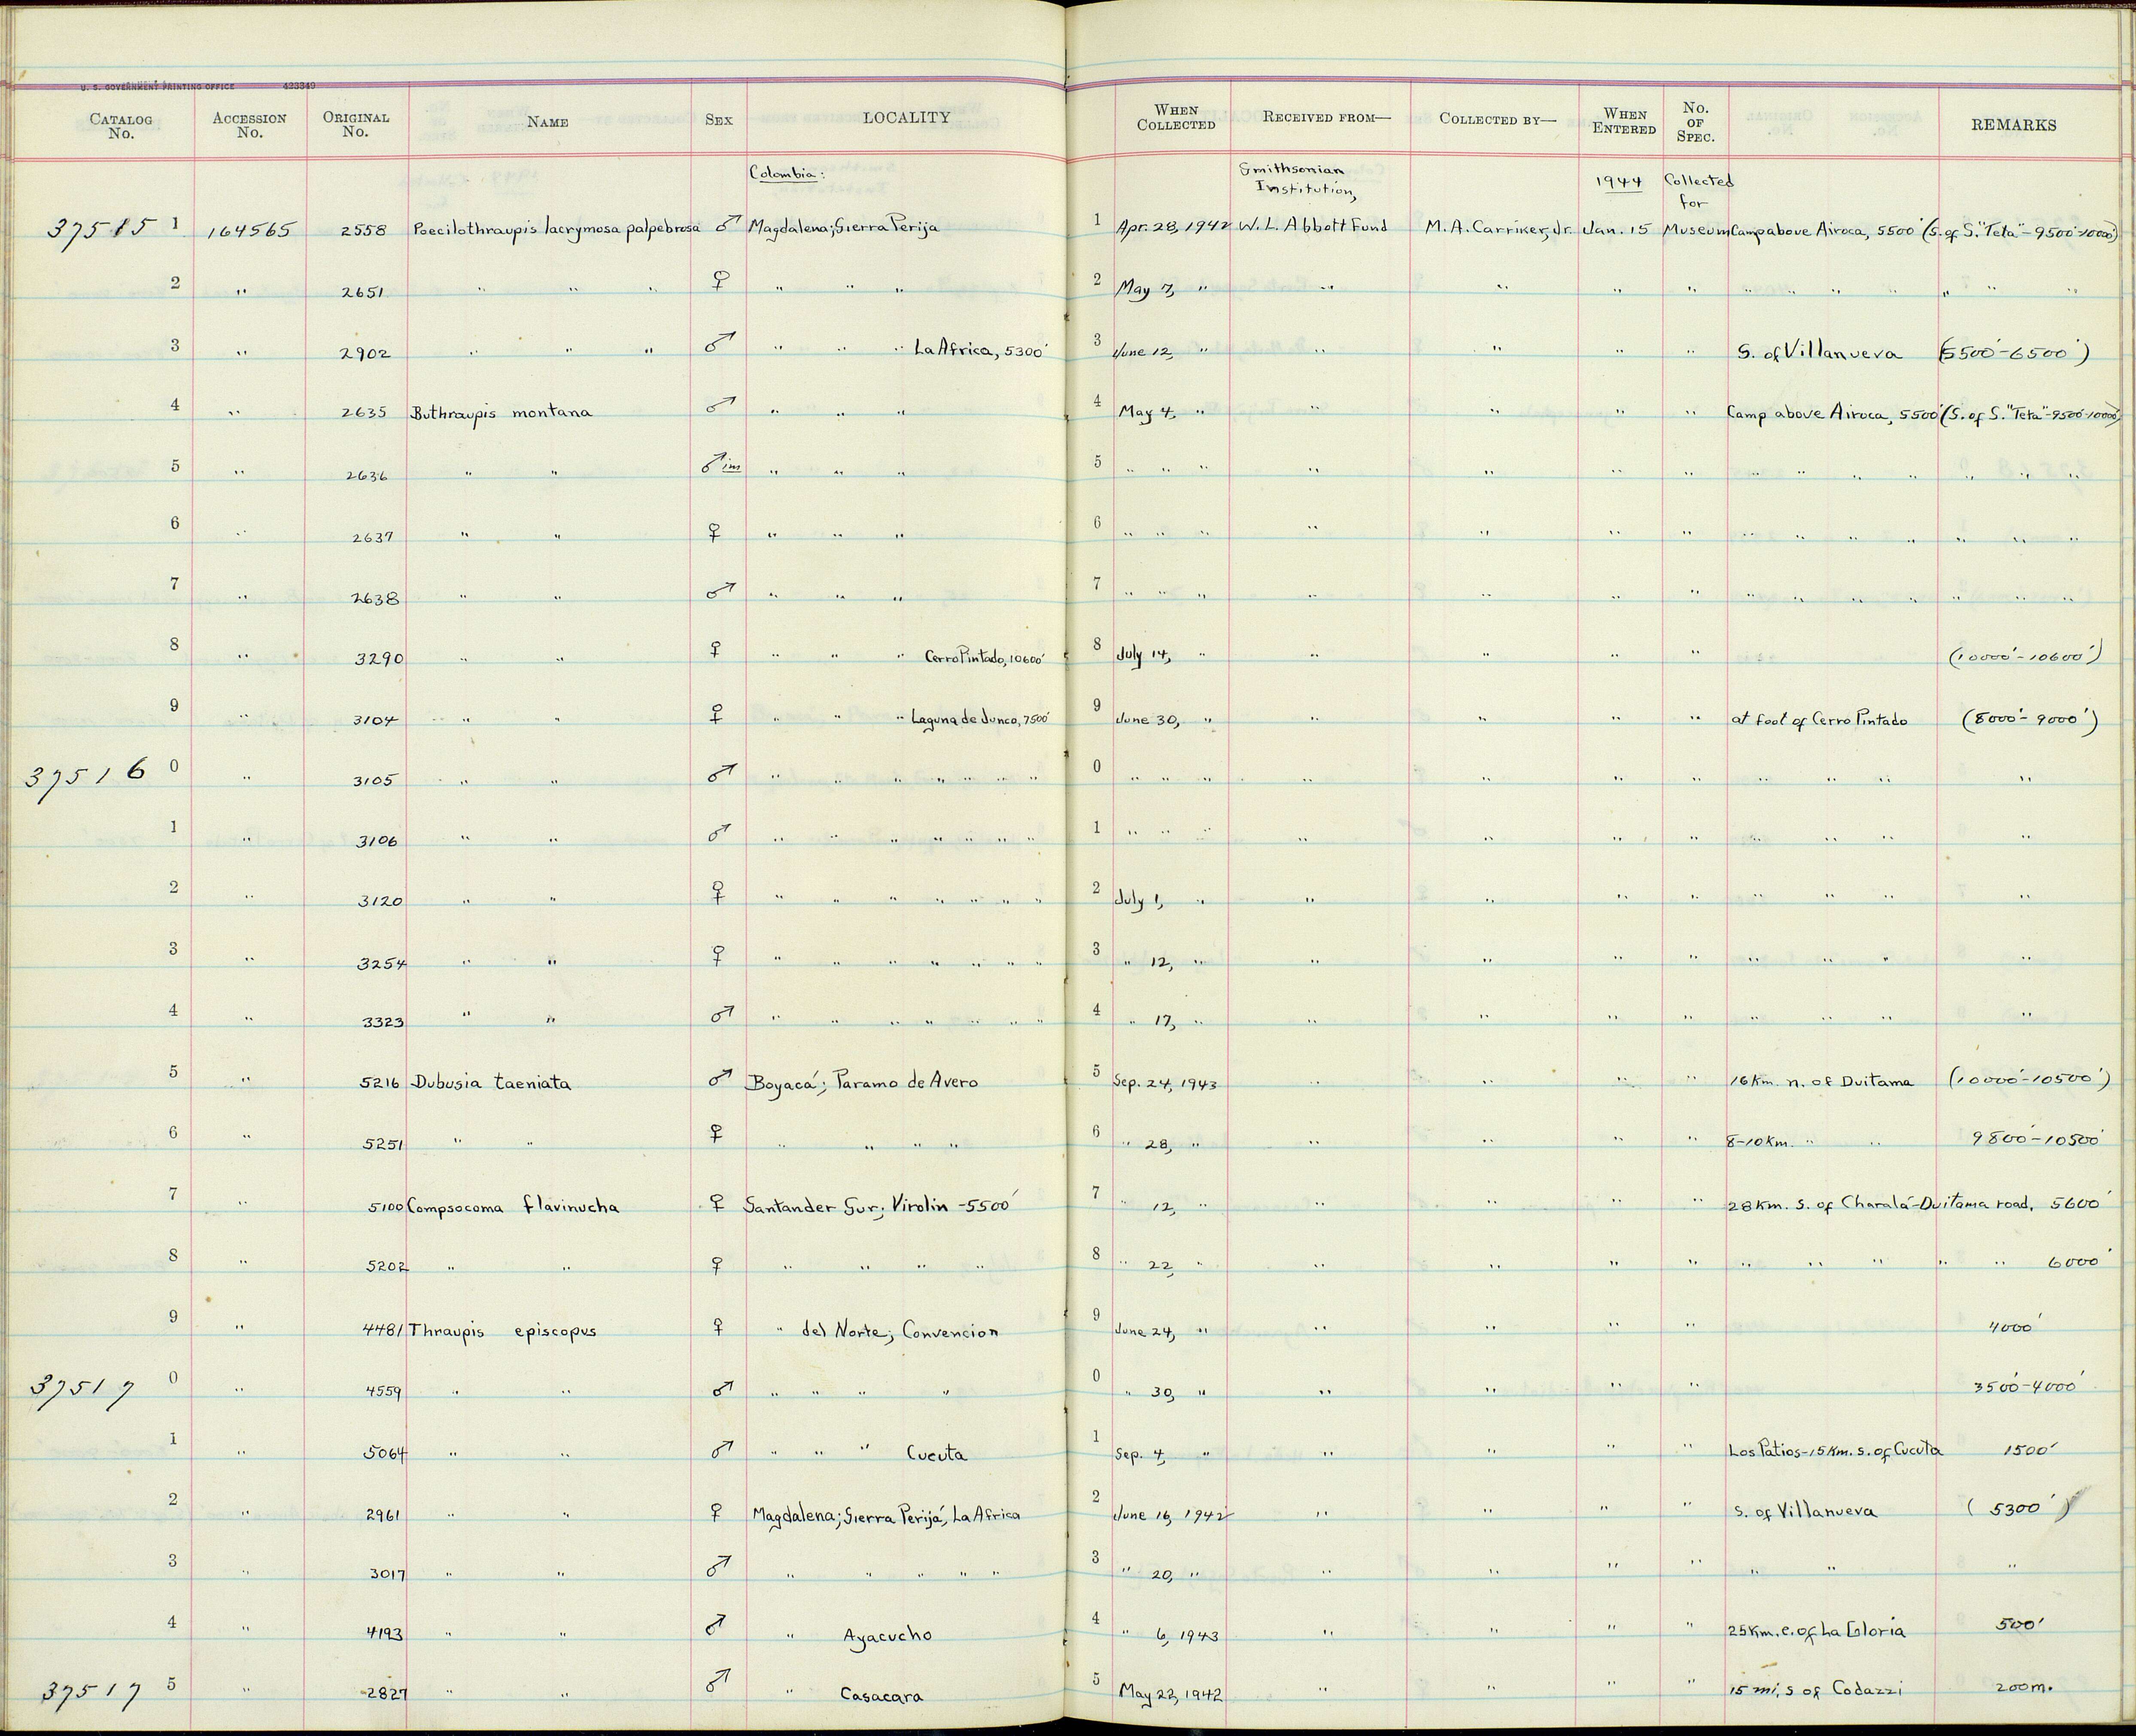 U. S. GOVERNMENT PRINTING OFFICE 423349
CATALOG No. ACCESSION No. ORIGINAL No. NAME SEX LOCALITY WHEN COLLECTED RECEIVED FROM— COLLECTED BY— WHEN ENTERED No. OF SPEC. REMARKS
Colombia: Smithsonian Institution, 1944 Collected for
37515 1 164565 2558 Poecilothraupis lacrymosa palpebrosa ♂ Magdalena; Sierra Perija 1 Apr. 28, 1942 W. L. Abbott Fund M. A. Carriker, Jr. Jan. 15 Museum Camp above Airoca, 5500' (S. of S. "Teta" - 9500'-10000')
2 " 2651 " " " ♀ " " " 2 May 7, " " " " " " " " " " " "
3 " 2902 " " " ♂ " " " La Africa, 5300' 3 June 12, " " " " " S. of Villanueva (5500'-6500')
4 " 2635 Buthraupis montana ♂ " " " 4 May 4, " " " " " Camp above Airoca, 5500' (S. of S. "Teta" - 9500'-10000')
5 " 2636 " " ♂ im " " " 5 " " " " " " " " " " " " " "
6 " 2637 " " ♀ " " " 6 " " " " " " " " " " " " " "
7 " 2638 " " ♂ " " " 7 " " " " " " " " " " " " " "
8 " 3290 " " ♀ " " " Cerro Pintado, 10600' 8 July 14, " " " " " (10000'-10600')
9 " 3104 " " ♀ " " " Laguna de Junco, 7500' 9 June 30, " " " " " at foot of Cerro Pintado (8000'-9000')
37516 0 " 3105 " " ♂ " " " " " " " 0 " " " " " " " " " " "
1 " 3106 " " ♂ " " " " " " " 1 " " " " " " " " " " "
2 " 3120 " " ♀ " " " " " " " 2 July 1, " " " " " " " " "
3 " 3254 " " ♀ " " " " " " " 3 " 12, " " " " " " " " "
4 " 3323 " " ♂ " " " " " " " 4 " 17, " " " " " " " " "
5 " 5216 Dubusia taeniata ♂ Boyacá; Paramo de Avero 5 Sep. 24, 1943 " " " " 16 Km. n. of Duitama (10000'-10500')
6 " 5251 " " ♀ " " " " 6 " 28, " " " " " 8-10 Km. " " 9800'-10500'
7 " 5100 Compsocoma flavinucha ♀ Santander Sur; Virolin - 5500' 7 " 12, " " " " " 28 Km. S. of Charalá-Duitama road, 5600'
8 " 5202 " " ♀ " " " " 8 " 22, " " " " " " " " " " 6000'
9 " 4481 Thraupis episcopus ♀ " del Norte; Convencion 9 June 24, " " " " " 4000'
37517 0 " 4559 " " ♂ " " " " 0 " 30, " " " " " 3500'-4000'
1 " 5064 " " ♂ " " " Cucuta 1 Sep. 4, " " " " " Los Patios - 15 Km. s. of Cucuta 1500'
2 " 2961 " " ♀ Magdalena; Sierra Perijá, La Africa 2 June 16, 1942 " " " " S. of Villanueva (5300')
3 " 3017 " " ♂ " " " " " 3 " 20, " " " " " " " "
4 " 4193 " " ♂ " Ayacucho 4 " 6, 1943 " " " " 25 Km. e. of La Gloria 500'
37517 5 " 2827 " " ♂ " Casacara 5 May 22, 1942 " " " " 15 mi. s of Codazzi 200 m.